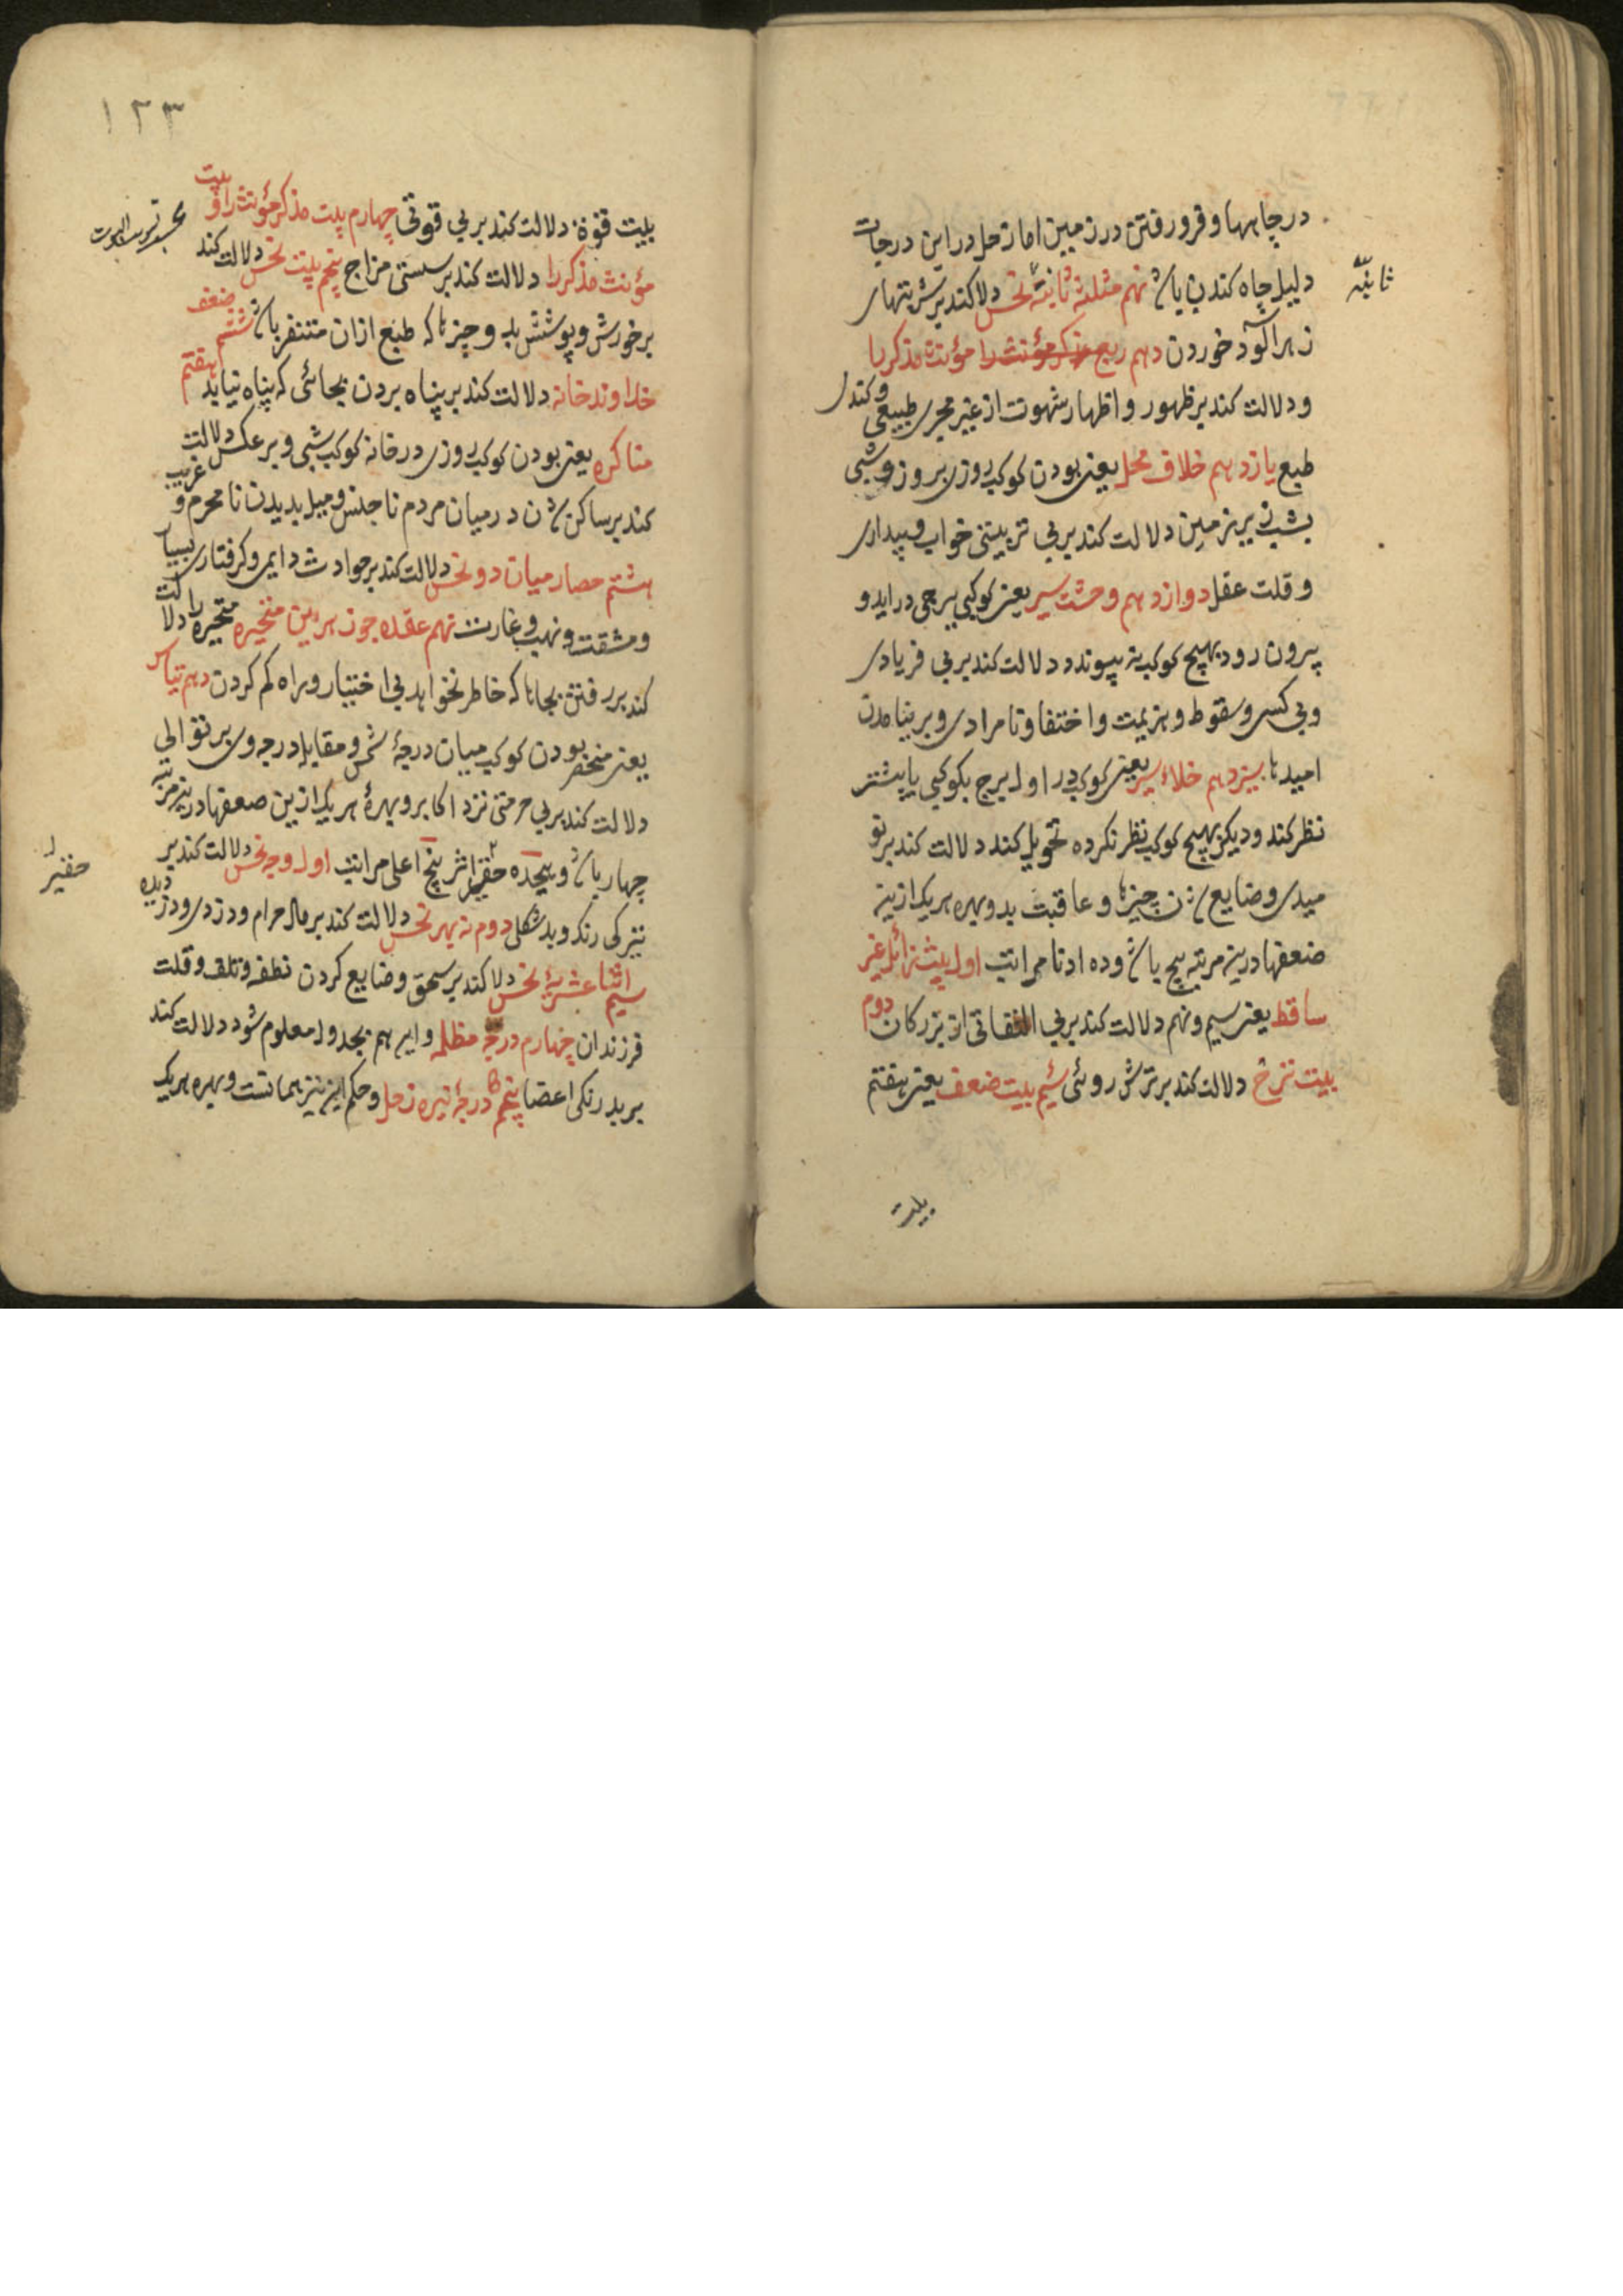 در چاهها و فرو رفتن در زمین اما زحل در این درجات
دلیل چاه کندن باشد نهم مثلثهٔ ثانیهٔ نحس دلا کند بر شربتهای
ثانیه
زهرآلود خوردن دهم ربع مذکر مؤنث را مؤنث مذکر را
و دلالت کند بر ظهور و اظهار شهوت از غیر مجری طبیعی و کندی
طبع یازدهم خلاف محل یعنی بودن کوکب روزی بروز و شبی
بشب زیر زمین دلالت کند بر بی تربیتی خواب و بیداری
و قلت عقل دوازدهم وحشت سیر یعنی کوکبی ببرجی دراید و
بیرون رود بهیچ کوکب نه پیوندد دلالت کند بر بی فریادی
و بی کسی و سقوط و هزیمت و اختفا و نامرادی و بر نیامدن
امیدها سیزدهم خلاء سیر یعنی کوکب در اول برج بکوکبی یا بیشتر
نظر کند و دیگر بهیچ کوکب نظر نکرده تحویل کند دلالت کند بر نو
میدی و ضایع شدن چیزها و عاقبت بد و بهره هر یک ازین
ضعفها درین مرتبه پنج باشد و ده ادنا مراتب اول بیت زائل غیر
ساقط یعنی سیم و نهم دلالت کند بر بی التفاتی از بزرگان دوم
بیت ترح دلالت کند بر ترش روئی سیم بیت ضعف یعنی هفتم
بیت
۱۲۳
بیت قوة دلالت کند بر بی قوتی چهارم بیت مذکر مؤنث را و بیت
مؤنث مذکر را دلالت کند بر سستی مزاج پنجم بیت نحس دلالت کند
بر خورش و پوشش بد و چیزها که طبع ازان متنفر باشد ششم ضعف
خداوند خانه دلالت کند بر پناه بردن بجائی که پناه نیابد هفتم
مناکره یعنی بودن کوکب روزی در خانه کوکب شبی و بر عکس دلالت
کند بر ساکن شدن در میان مردم ناجنس و میل بدیدن نامحرم و غریب
هشتم حصار میان دو نحس دلالت کند بر حوادث دایمی و گرفتاری بسیار
و مشقت و نهب و غارت نهم عقده جوزهرین متحیره متحیره را دلالت
کند بر رفتن بجاها که خاطر نخواهد بی اختیار و راه گم کردن دهم تیاسر
یعنی منحصر بودن کوکب میان درجهٔ شمس و مقابله درجه وی بر توالی
دلالت کند بر بی حرمتی نزد اکابر و بهرهٔ هر یک ازین ضعفها درین مرتبه
چهار باشد و هیجده حقیر اثر پنج اعلی مراتب اول وجه نحس دلالت کند بر
حقیر
تیرگی رنگ و بد شکلی دوم نه بهر نحس دلالت کند بر مال حرام و دزدی و دزدیده
سیم اثنا عشریهٔ نحس دلا کند بر سحق و ضایع کردن نطفه و تلف و قلت
فرزندان چهارم درجهٔ مظلمه و این هم بجدول معلوم شود دلالت کند
بر بد رنگی اعضا پنجم درجهٔ تیره زحل و حکم این نیز همانست و بهره هر یک